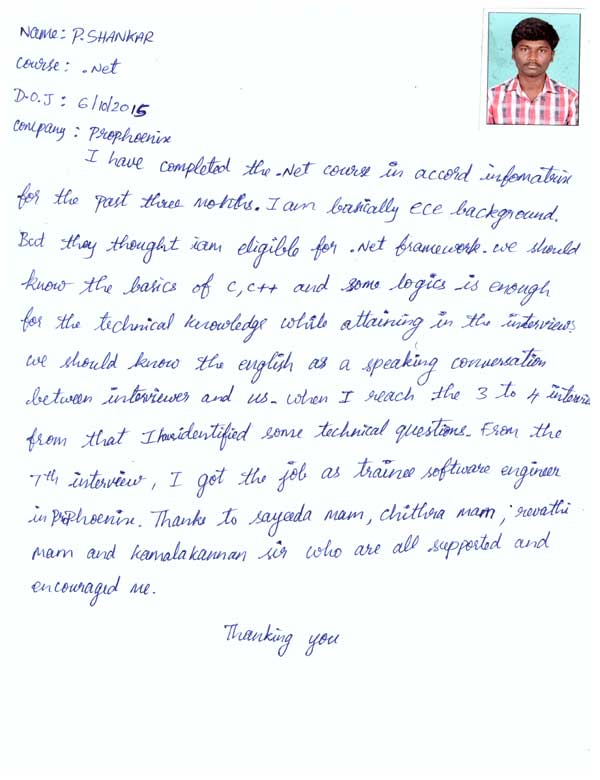 Name: P.SHANKAR
Course: .Net
D.O.J : 6/10/2015
Company : Prophoenix
I have completed the .Net course in accord infomatrix
for the past three months. I am basically ECE background.
But they thought iam eligible for .Net framework. we should
know the basics of C, C++ and some logics is enough
for the technical knowledge while attaining in the interviews.
we should know the english as a speaking conversation
between interviewer and us. when I reach the 3 to 4 interview
from that I have identified some technical questions. From the
7th interview, I got the job as trainee software engineer
in Prophoenix. Thanks to sayeeda mam, chithra mam, revathi
mam and kamalakannan sir who are all supported and
encouraged me.
Thanking you